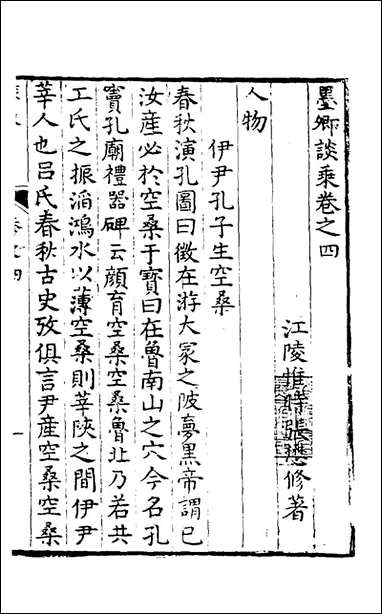 墨卿談乗卷之四
江陵惟時張懋修著
人物
伊尹孔子生空桑
春秋演孔圖曰徵在游大冢之陂夢黒帝謂已
汝産必於空桑于寶曰在魯南山之穴今名孔
竇孔廟禮器碑云顔育空桑空桑魯北乃若共
工氏之振滔鴻水以薄空桑則莘陜之間伊尹
莘人也吕氏春秋古史攷俱言尹産空桑空桑
卷之四
一